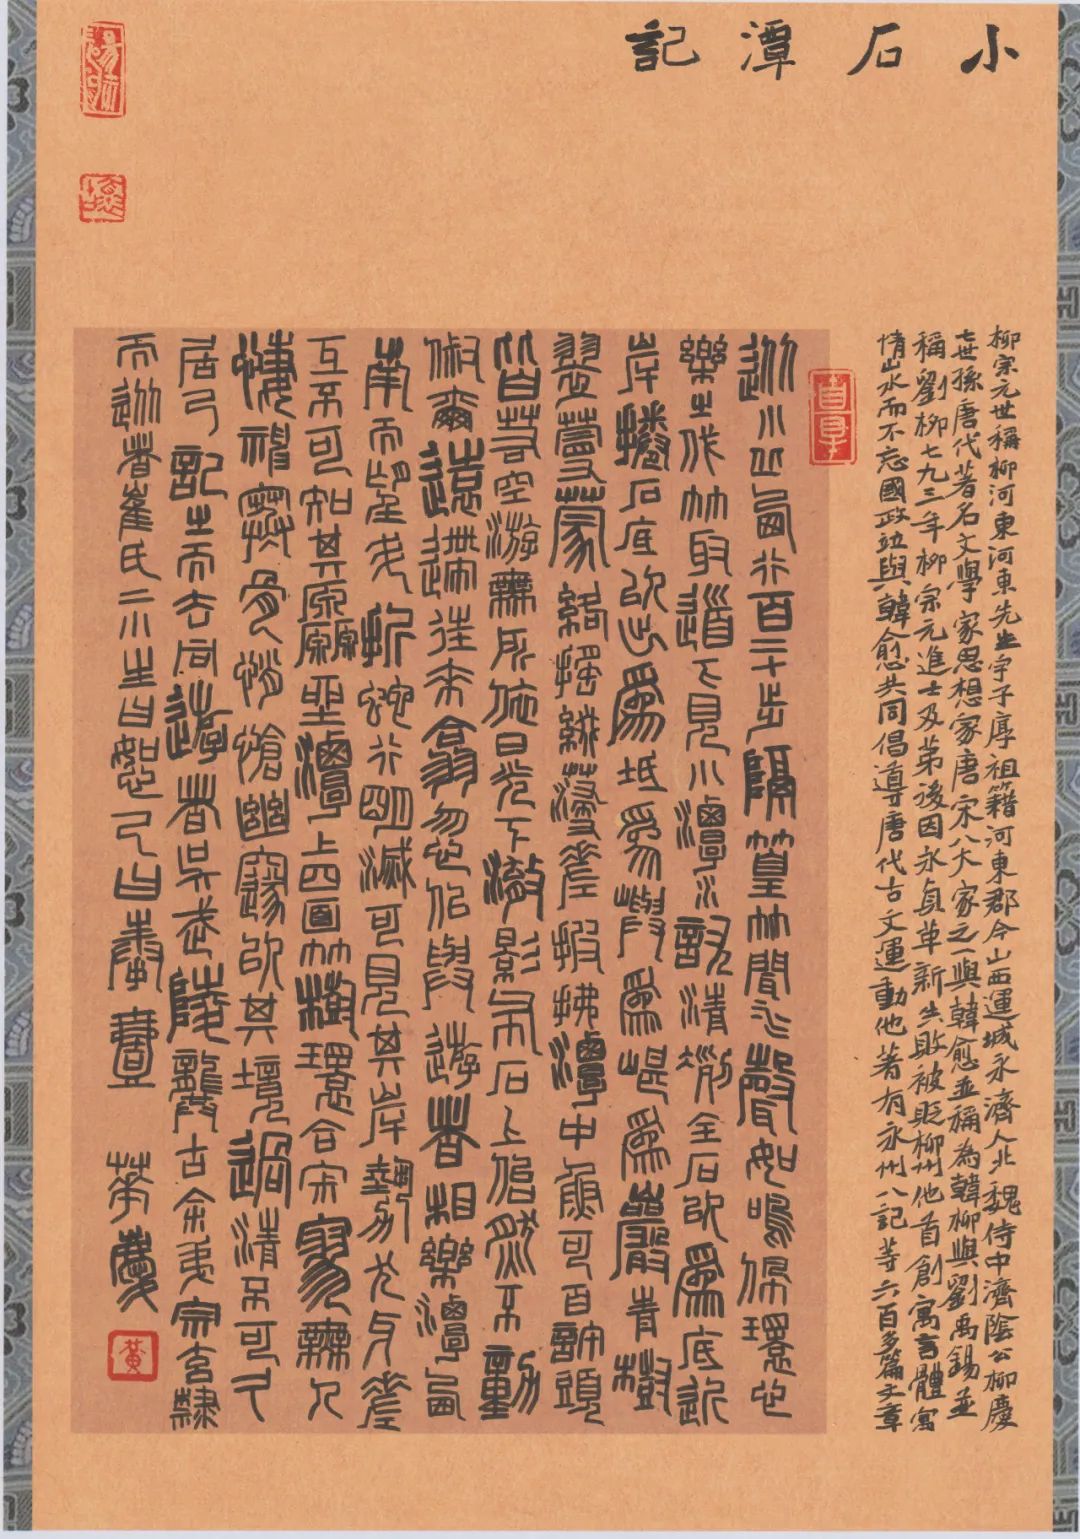 小石潭記
柳宗元世稱柳河東河東先生字子厚祖籍河東郡今山西運城永濟人北魏侍中濟陰公柳慶
七世孫唐代著名文學家思想家唐宋八大家之一與韓愈並稱為韓柳與劉禹錫並
稱劉柳七九三年柳宗元進士及第後因永貞革新失敗被貶柳州他首創寓言體寓
情山水而不忘國政並與韓愈共同倡導唐代古文運動他著有永州八記等六百多篇文章
從小丘西行百二十步隔篁竹聞水聲如鳴佩環心
樂之伐竹取道下見小潭水尤清冽全石以為底近
岸卷石底以出為坻為嶼為嵁為巖青樹
翠蔓蒙絡搖綴參差披拂潭中魚可百許頭
皆若空游無所依日光下澈影布石上佁然不動
俶爾遠逝往來翕忽似與遊者相樂潭西
南而望斗折蛇行明滅可見其岸勢犬牙差
互不可知其源坐潭上四面竹樹環合寂寥無人
悽神寒骨悄愴幽邃以其境過清不可久
居乃記之而去同遊者吳武陵龔古余弟宗玄隸
而從者崔氏二小生曰恕己曰奉壹
黃